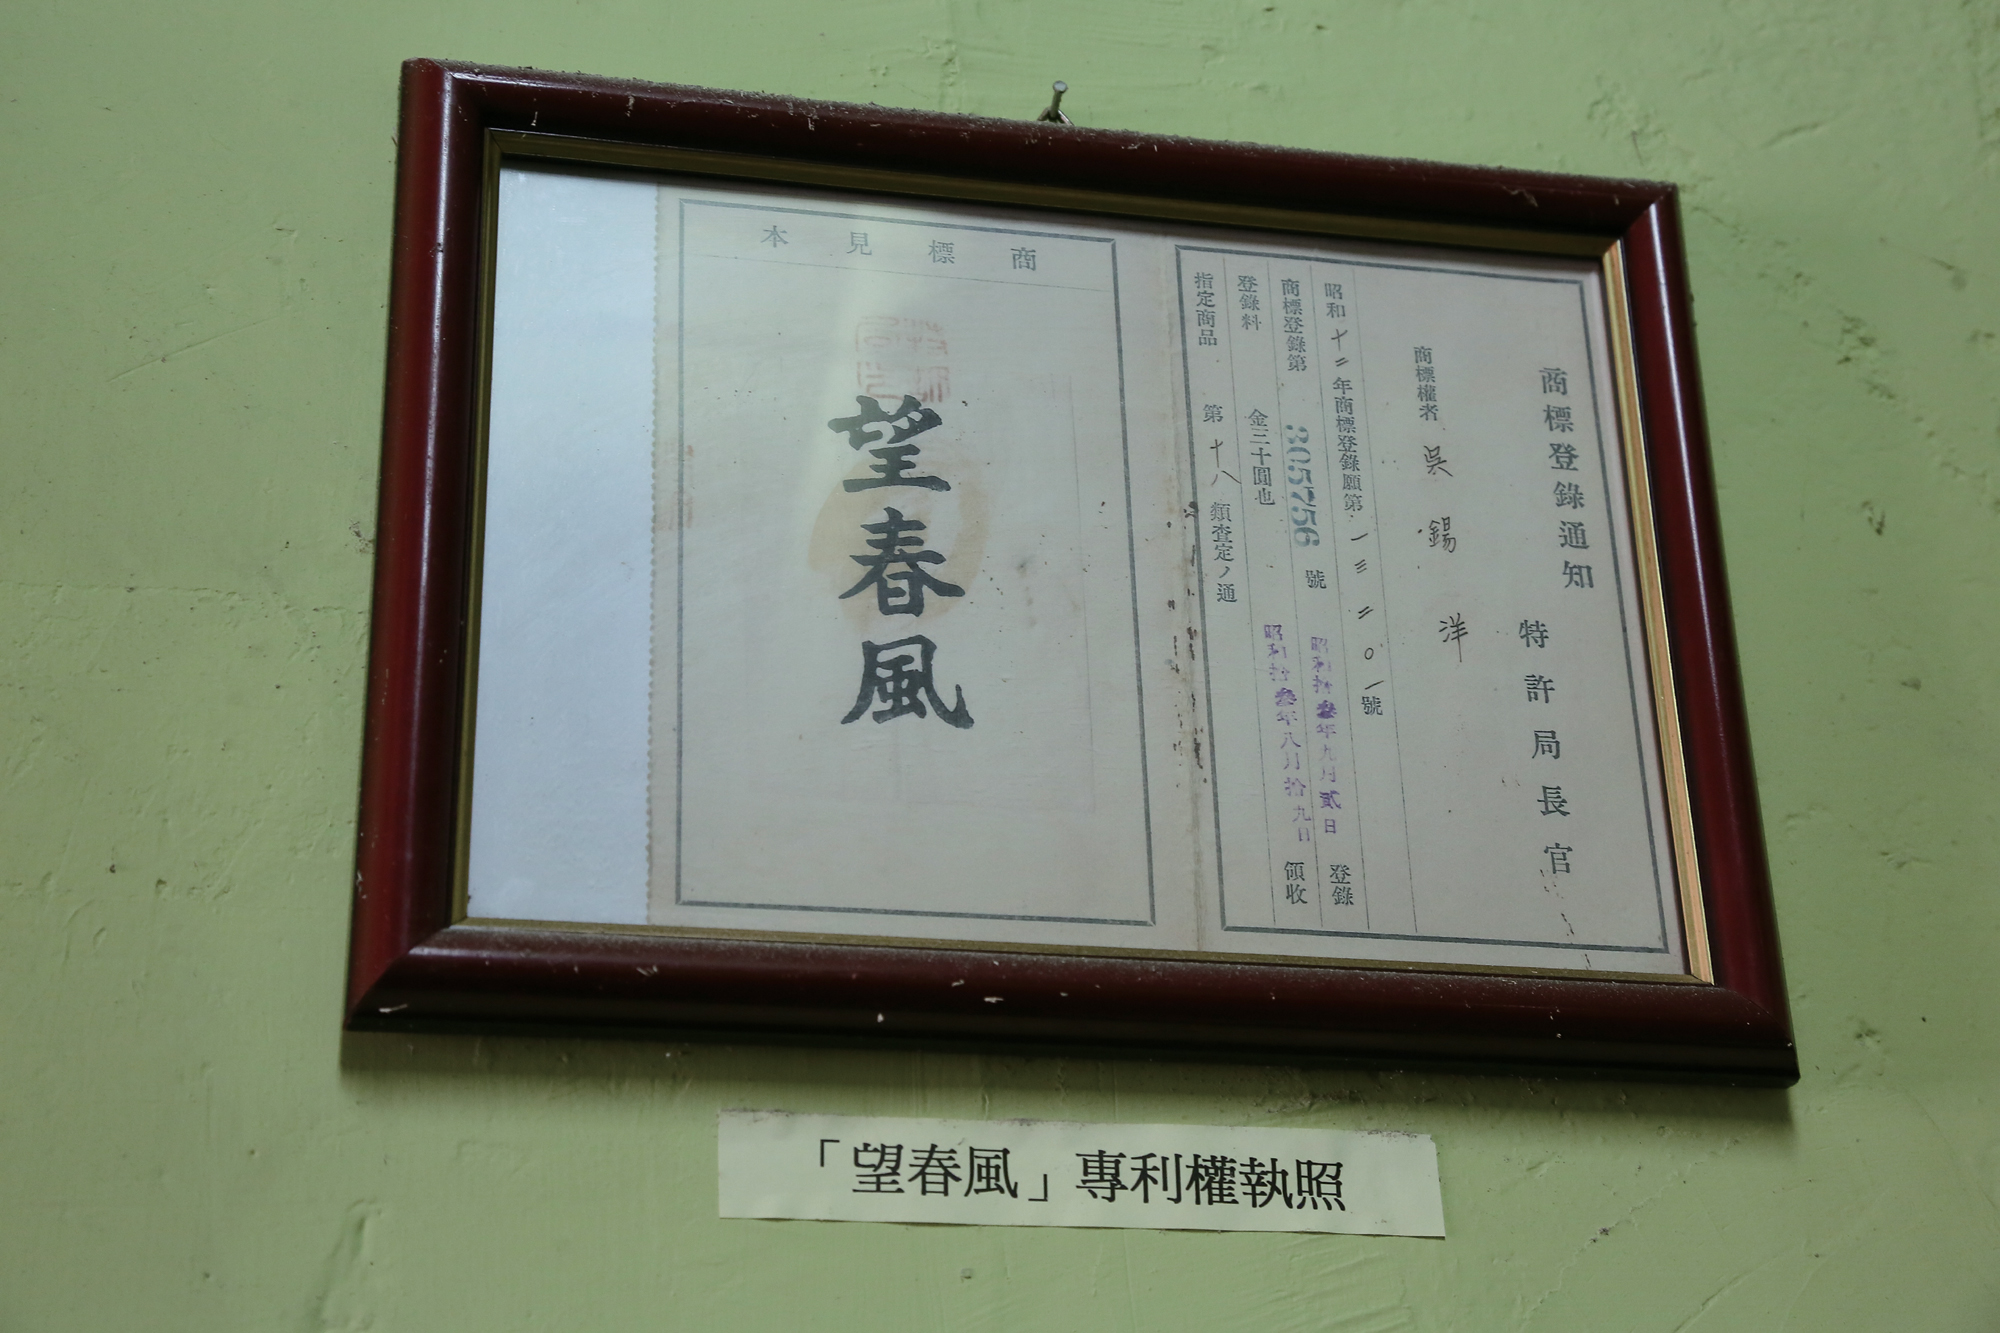 商標登錄通知
特許局長官
商標權者 吳錫洋
昭和十二年商標登錄願第一三二〇一號
商標登錄第 305756 號 昭和拾叁年九月貳日 登錄
登錄料 金三十圓也 昭和拾叁年八月拾九日 領收
指定商品 第十八類査定ノ通
商標見本
望春風
「望春風」專利權執照